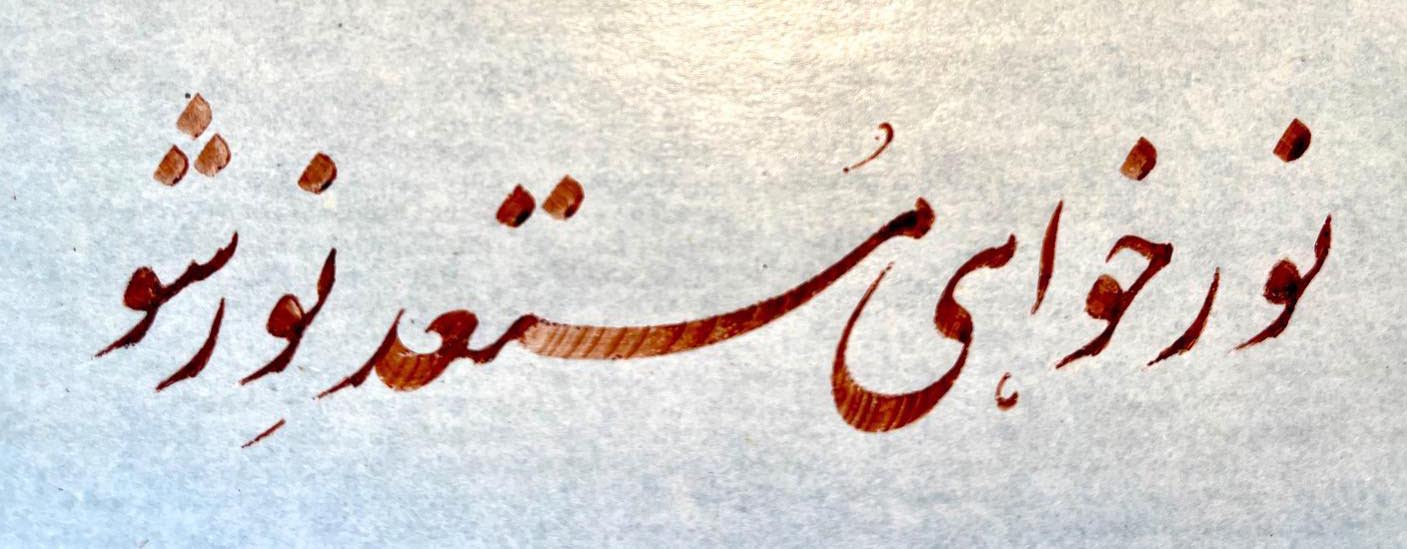 نور خواهی مُستعد نورِ شو